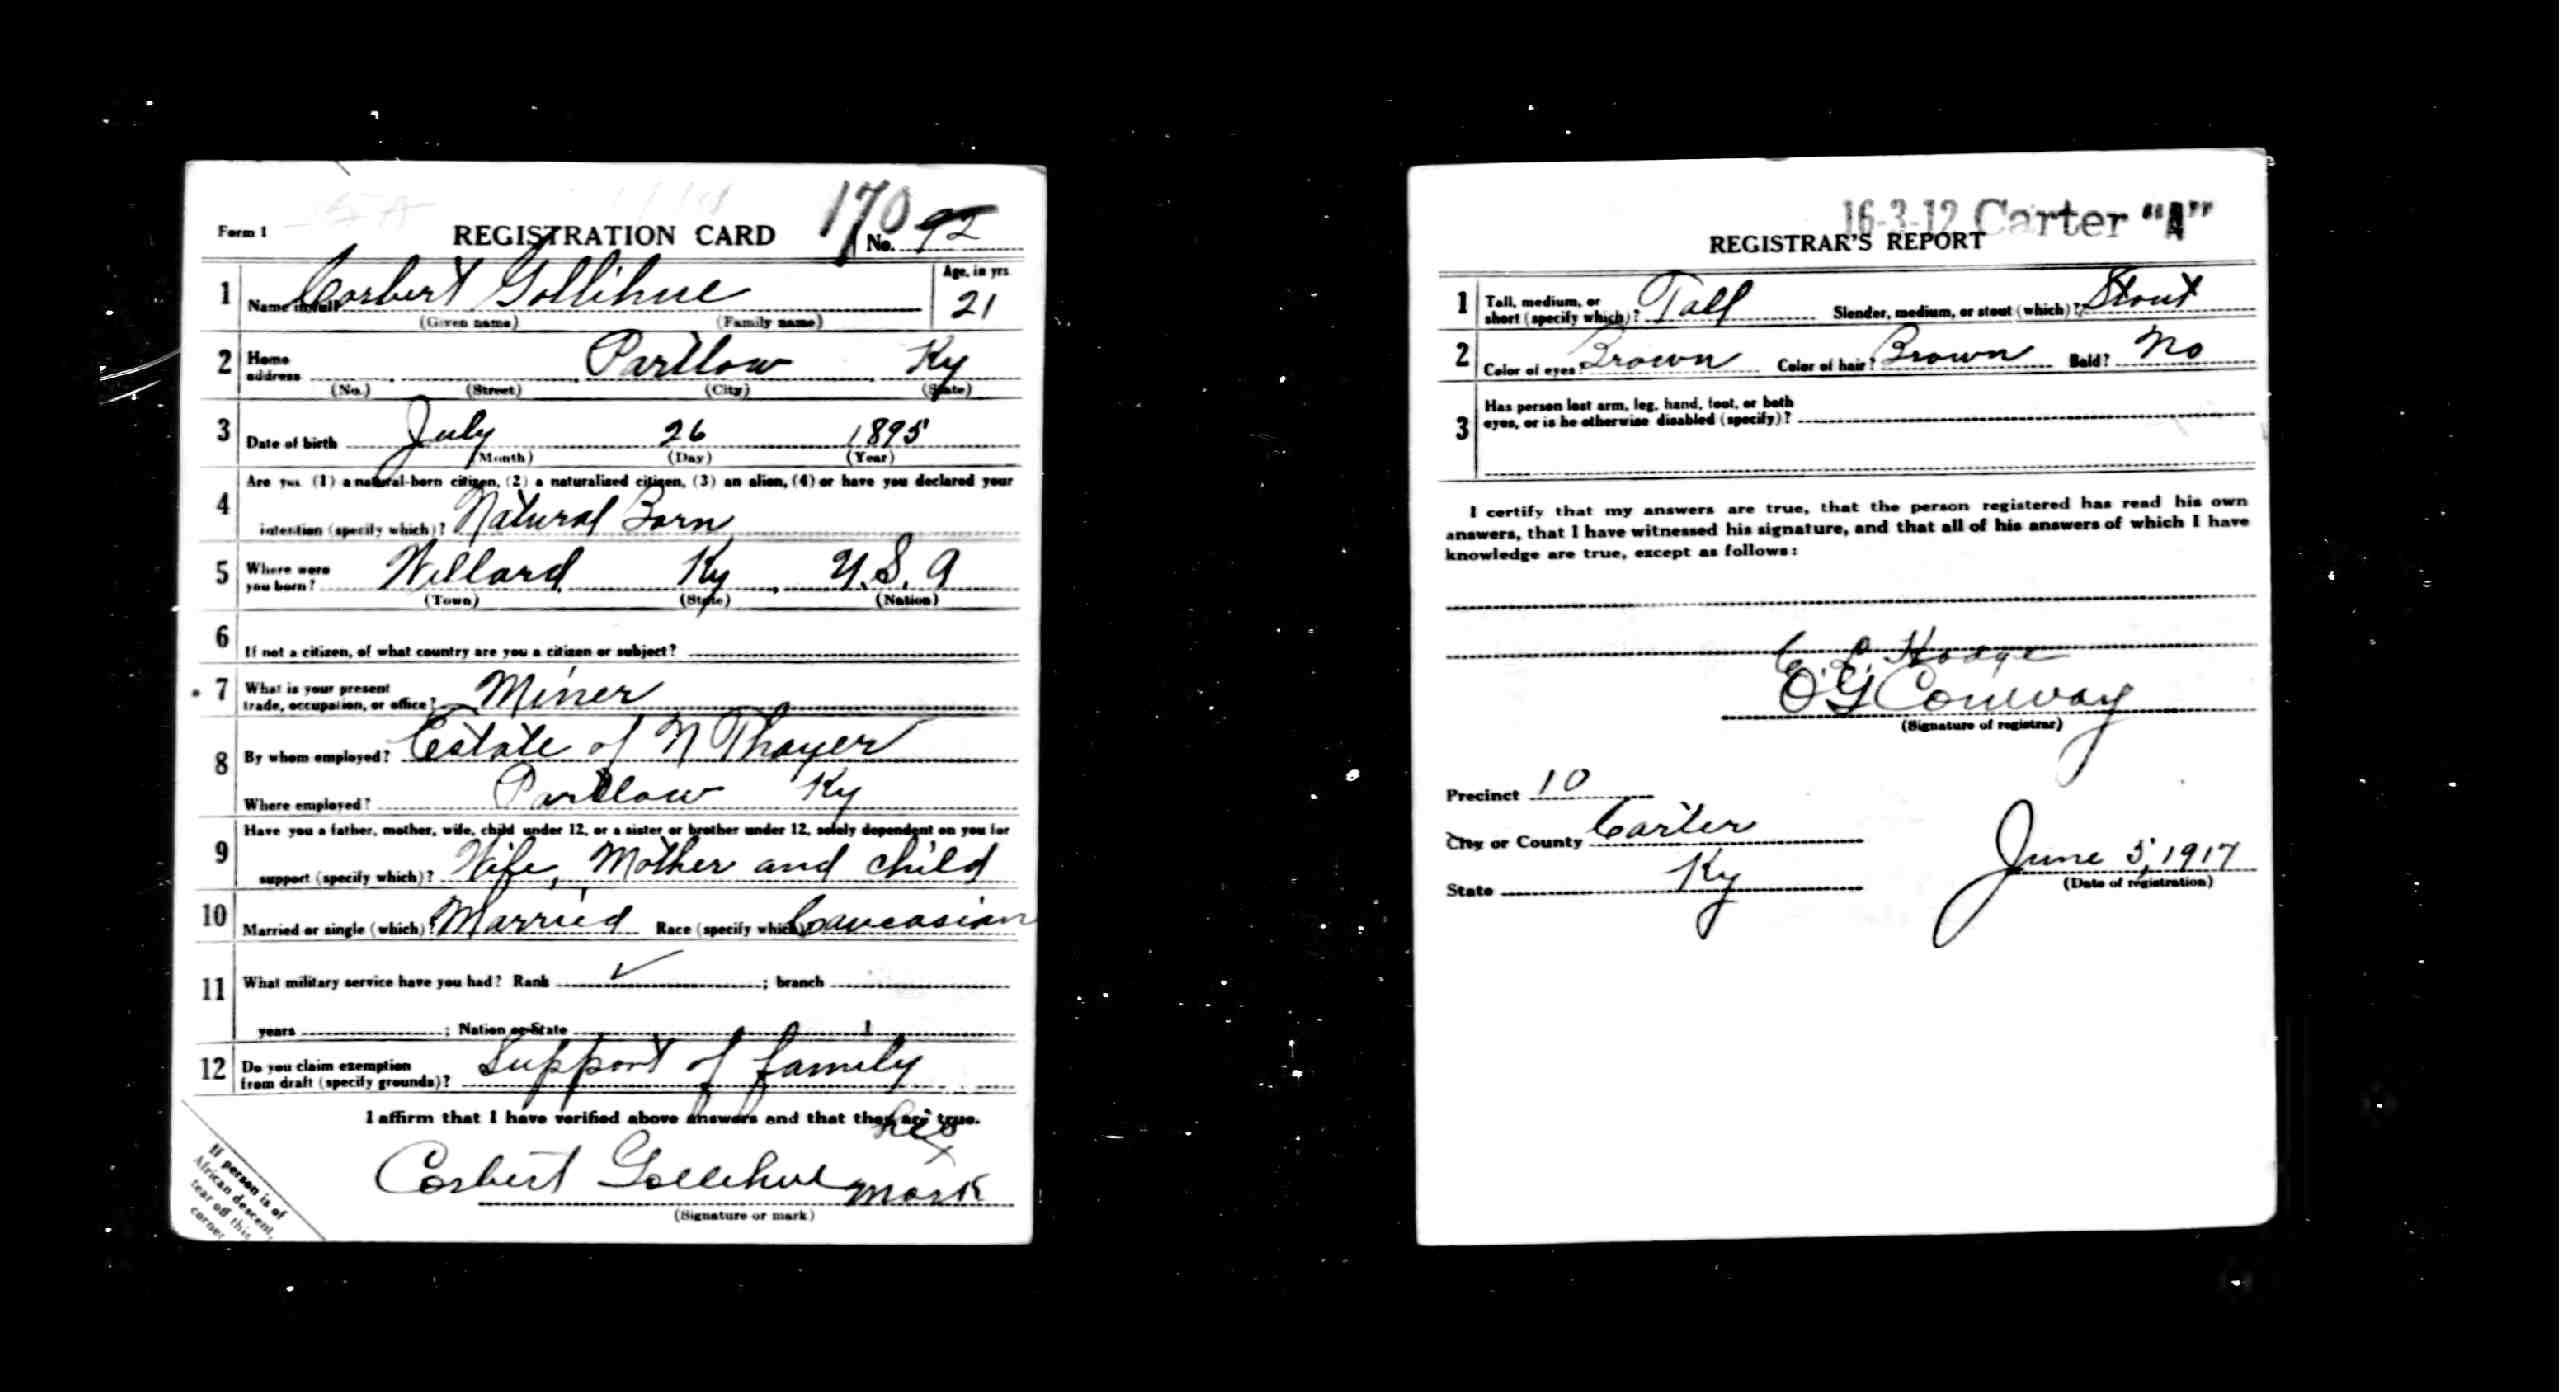 170
Form 1 REGISTRATION CARD No. 92
1 Name in full Corbert Gollihue Age, in yrs 21
(Given name) (Family name)
2 Home address Partlow Ky
(No.) (Street) (City) (State)
3 Date of birth July 26 1895
(Month) (Day) (Year)
4 Are you (1) a natural-born citizen, (2) a naturalized citizen, (3) an alien, (4) or have you declared your
intention (specify which)? Natural Born
5 Where were you born? Willard Ky U.S.A
(Town) (State) (Nation)
6 If not a citizen, of what country are you a citizen or subject?
7 What is your present trade, occupation, or office? Miner
8 By whom employed? Estate of N Thayer
Where employed? Partlow Ky
9 Have you a father, mother, wife, child under 12, or a sister or brother under 12, solely dependent on you for
support (specify which)? Wife, Mother and child
10 Married or single (which)? Married Race (specify which)? Caucasian
11 What military service have you had? Rank ✓ ; branch
years ; Nation or State
12 Do you claim exemption from draft (specify grounds)? Support of family
I affirm that I have verified above answers and that they are true.
his
x
Corbert Gollihue mark
(Signature or mark)
If person is of
African descent,
tear off this
corner.
16-3-12 Carter "A"
REGISTRAR'S REPORT
1 Tall, medium, or short (specify which)? Tall Slender, medium, or stout (which)? Stout
2 Color of eyes? Brown Color of hair? Brown Bald? No
3 Has person lost arm, leg, hand, foot, or both
eyes, or is he otherwise disabled (specify)?
I certify that my answers are true, that the person registered has read his own
answers, that I have witnessed his signature, and that all of his answers of which I have
knowledge are true, except as follows:
C. L. Hodge
O G Conway
(Signature of registrar)
Precinct 10
City or County Carter
State Ky
June 5, 1917
(Date of registration)